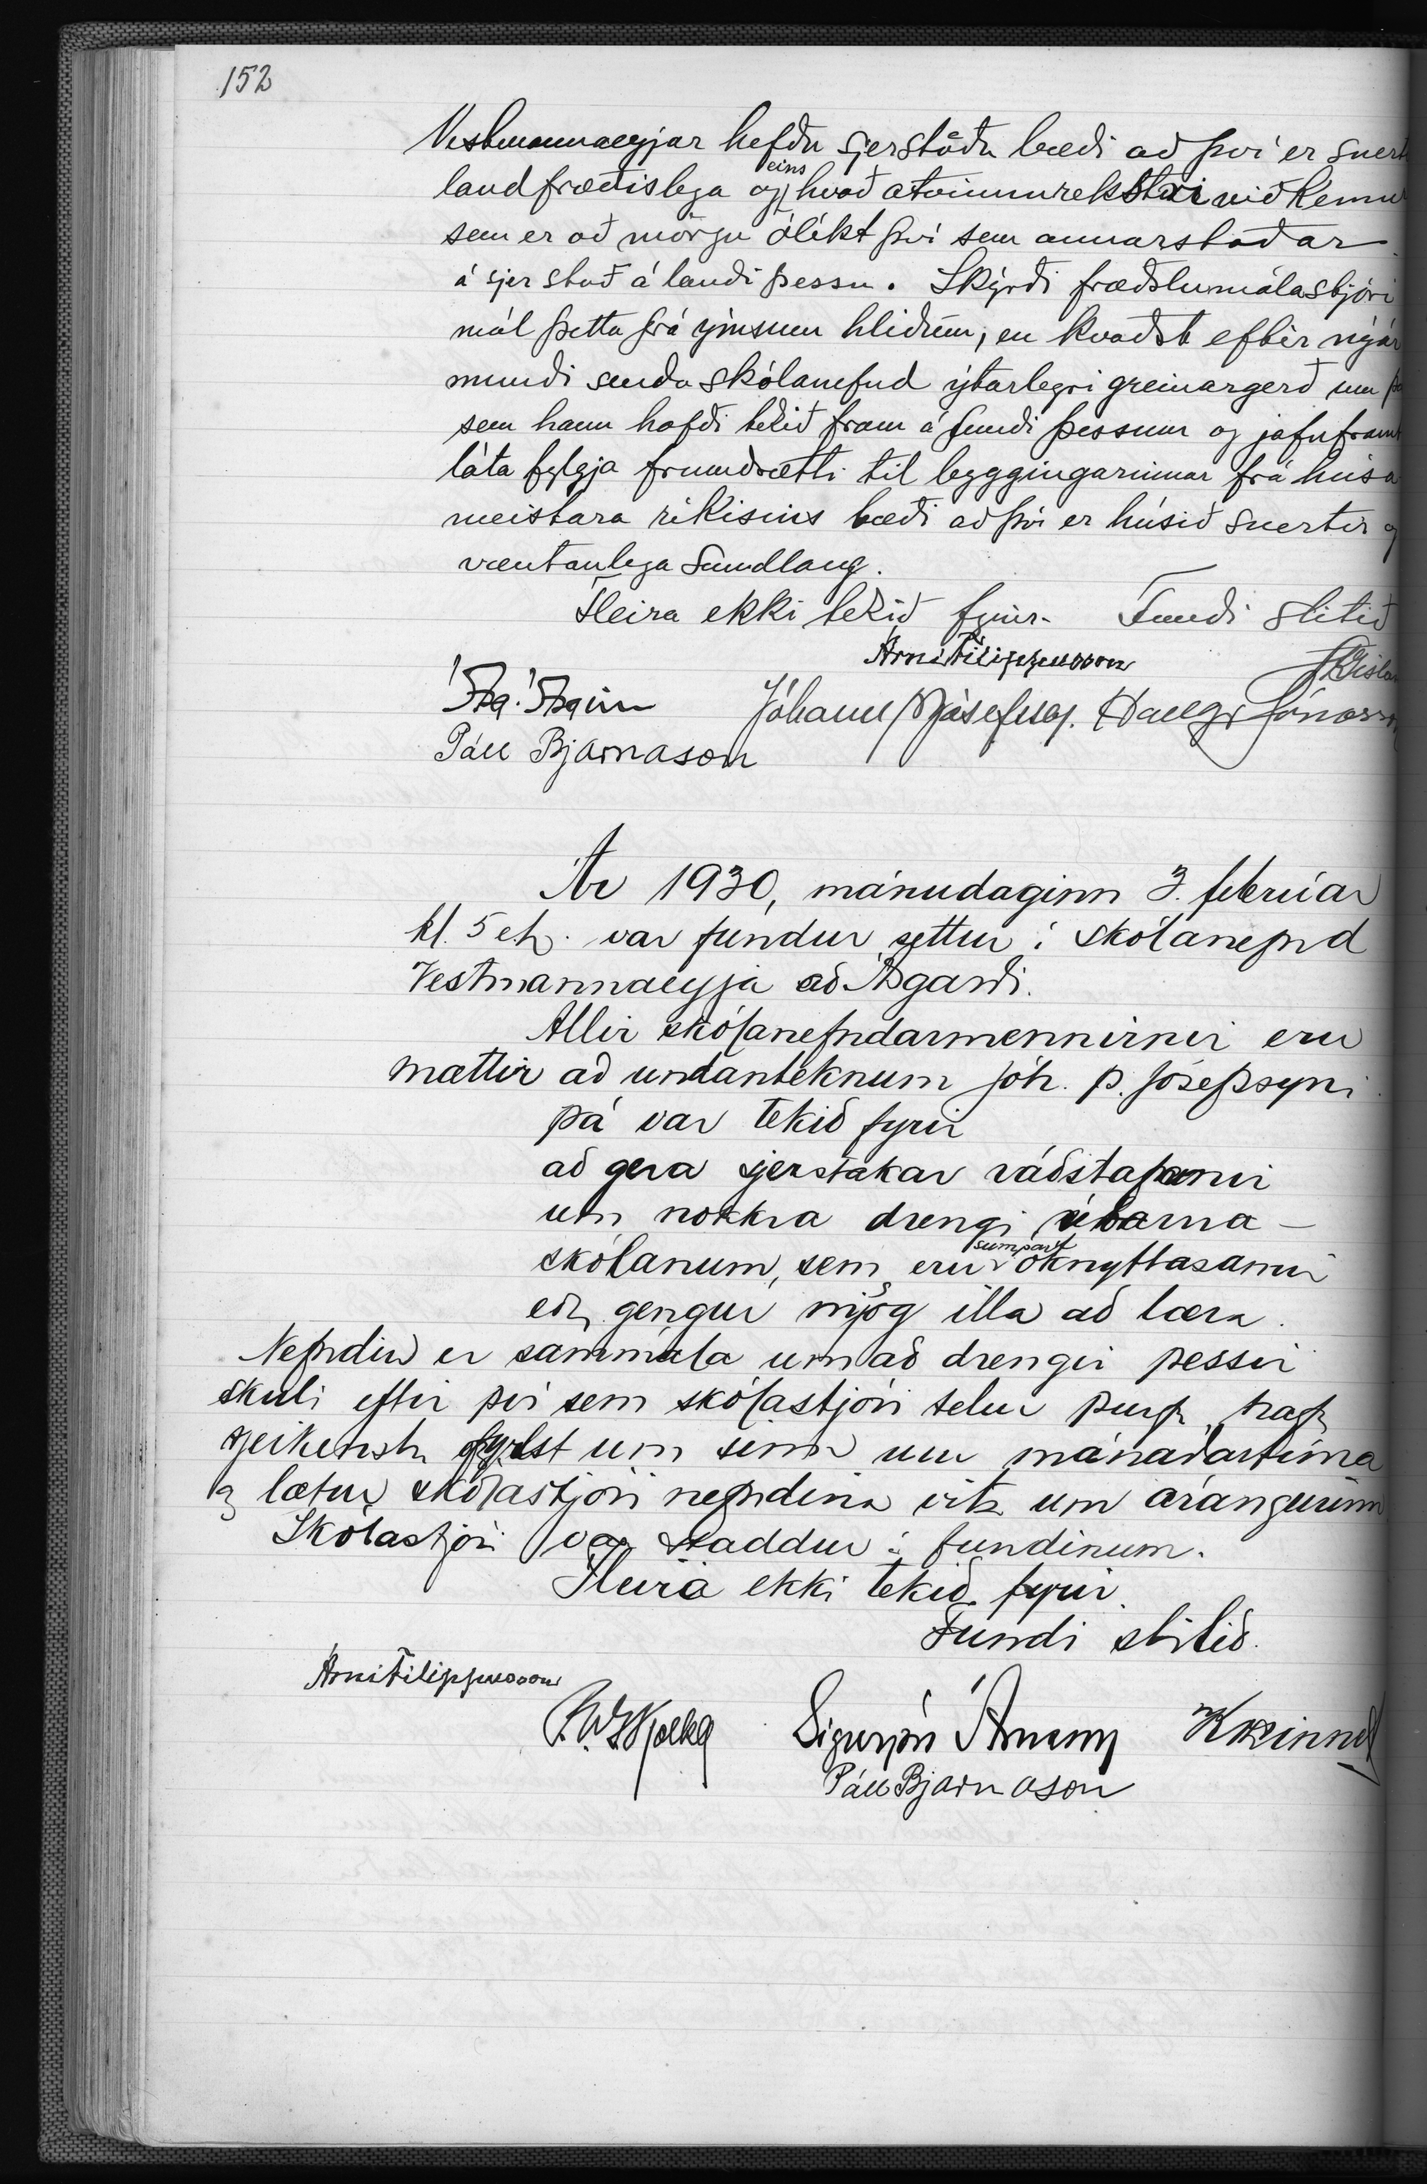 152
Vestmannaeyjar hefðu sjerstöðu bæði að því er snert
landfræðislega og eins hvað atvinnurekstri við kemur
sem er að mörgu ólíkt því sem annarstaðar
á sjer stað á landi þessu. Skýrði fræðslumálastjóri
mál þetta frá ýmsum hliðum, en kvaðst eftir nýár
mundi senda skólanefnd ýtarlegri greinargerð um þa
sem hann hafði tekið fram á fundi þessum og jafnframt
láta fylgja frumdrætti til byggingarinnar frá húsa
meistara ríkisins bæði að því er húsið snertir og
væntanlega sundlaug.
Fleira ekki tekið fyrir. Fundi slitið
Árni Filippusson
Jóhann Þ Jósefsson. Hallgr Jónasson
Páll Bjarnason
Ár 1930, mánudaginn 3. febrúar
kl. 5 e.h. var fundur settur í skólanefnd
Vestmannaeyja að Ásgarði.
Allir skólanefndarmennirnir eru
mættir að undanteknum Jóh. Þ. Jósefssyni.
Þá var tekið fyrir
að gera sjerstakar ráðstafanir
um nokkra drengi í barna-
skólanum, sem eru sumpart óknyttasamir
eða gengur mjög illa að læra.
Nefndin er sammála um að drengir þessir
skuli eftir því sem skólastjóri telur þurfa, hafa
sjerkenslu fyrst um sinn um mánaðartíma
og lætur skólastjóri nefndina vita um árangurinn
Skólastjóri var staddur á fundinum.
Fleira ekki tekið fyrir.
Fundi slitið.
Árni Filippusson
Sigurjón Árnason K Linnet
Páll Bjarnason